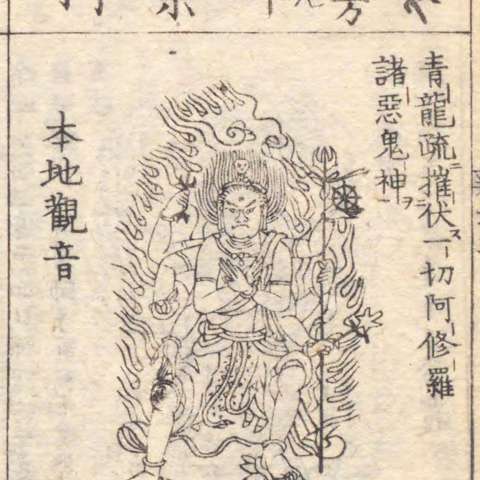 青龍疏摧伏一切阿修羅
諸惡鬼神
本地觀音